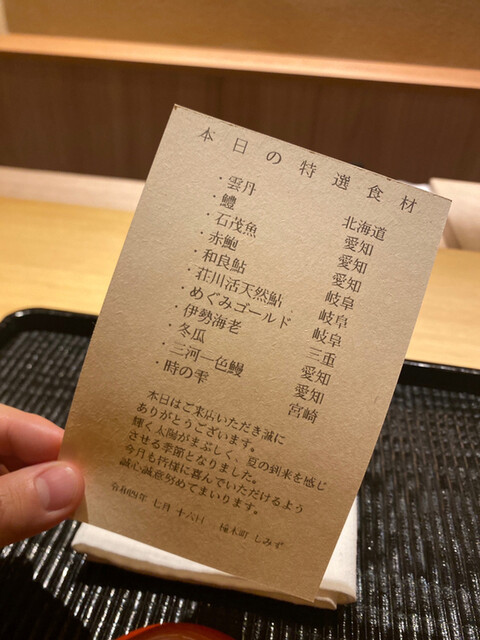 本日の特選食材
・雲丹 北海道
・鱧 愛知
・石茂魚 愛知
・赤鮑 愛知
・和良鮎 岐阜
・荘川活天然鮎 岐阜
・めぐみゴールド 岐阜
・伊勢海老 三重
・冬瓜 愛知
・三河一色鰻 愛知
・時の雫 宮崎
本日はご来店いただき誠に
ありがとうございます。
輝く太陽がまぶしく、夏の到来を感じ
させる季節となりました。
今月も皆様に喜んでいただけるよう
誠心誠意努めてまいります。
令和四年 七月 十六日 橦木町 しみず